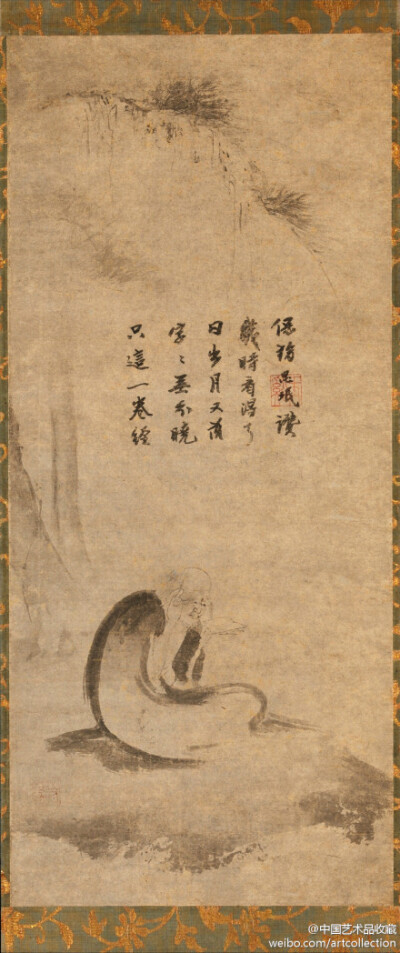 只這一卷經
字〻 曉
日出月又落
幾時看得了
保寧 珉讚
@中国艺术品收藏
weibo.com/artcollection